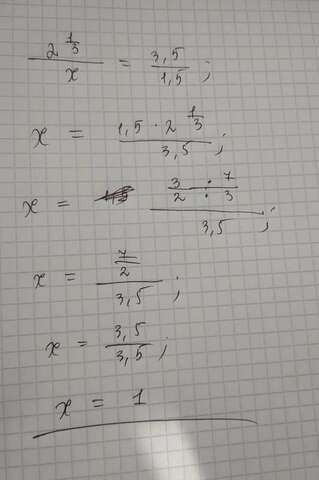 2 1/3 / x = 3,5 / 1,5 ;
x = 1,5 · 2 1/3 / 3,5 ;
x = 3/2 · 7/3 / 3,5 ;
x = 7/2 / 3,5 ;
x = 3,5 / 3,5 ;
x = 1